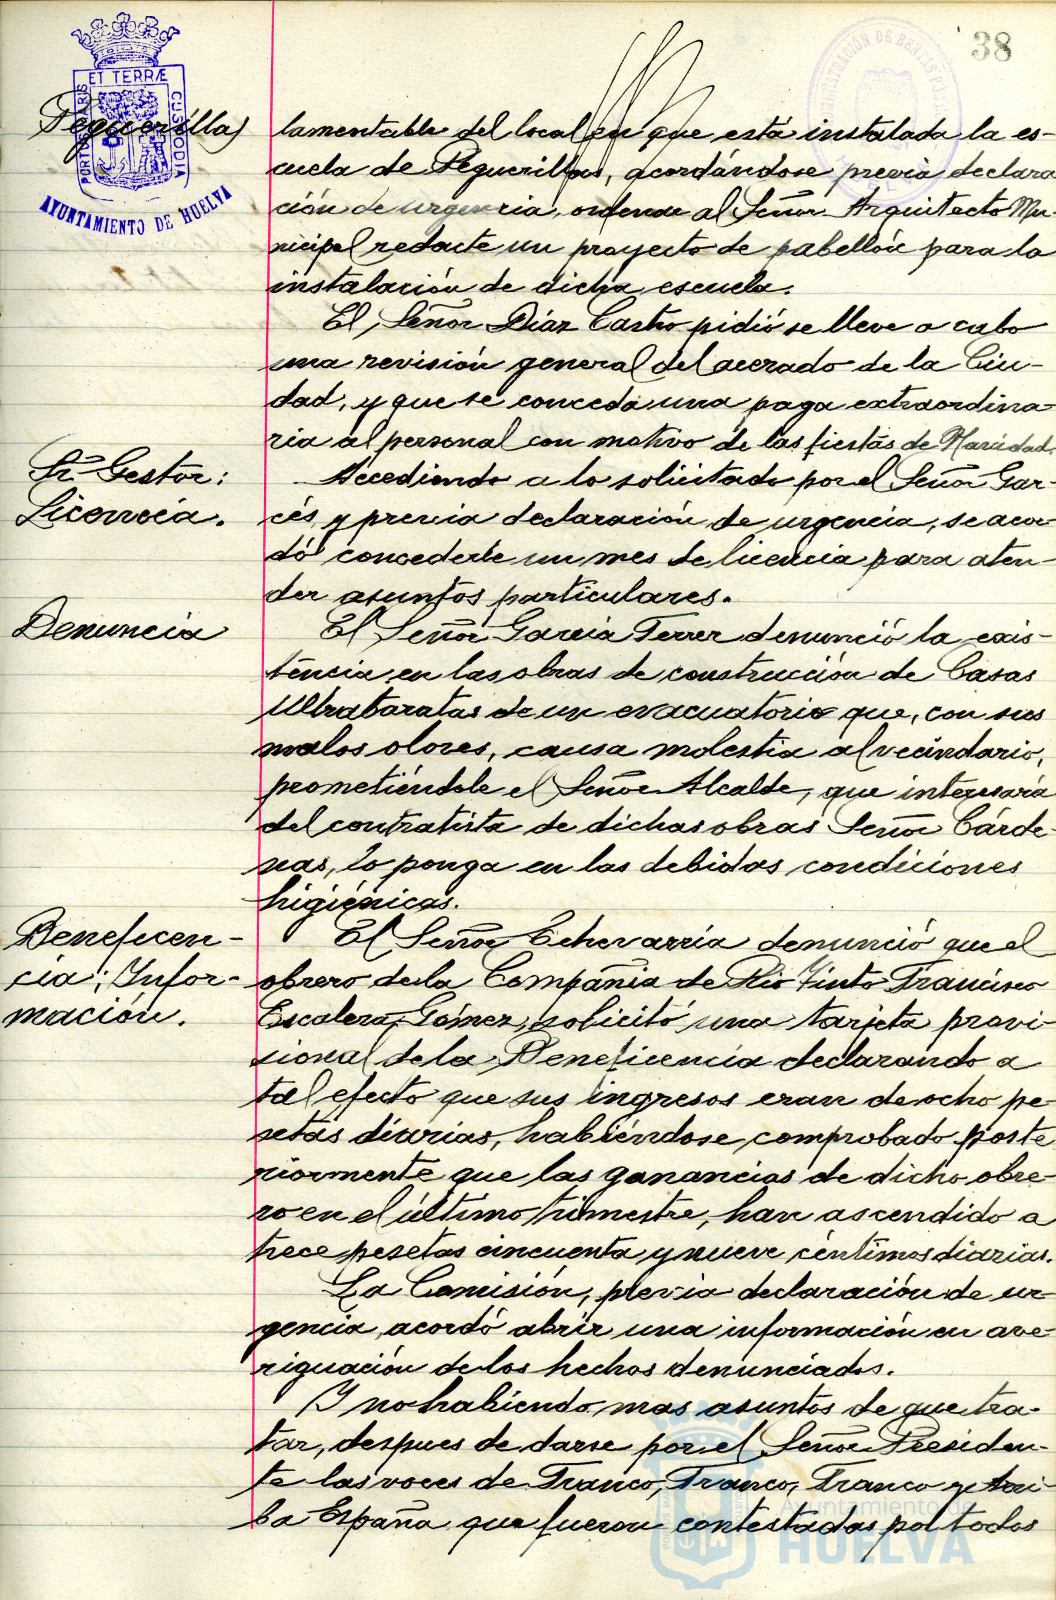 38
ET TERRÆ
PORTUS MARIS
CUSTODIA
AYUNTAMIENTO DE HUELVA
Peguerilla)
lamentable del local en que está instalada la es-
cuela de Peguerillas, acordándose previa declara
ción de urgencia, ordenar al Señor Arquitecto Mu-
nicipal redacte un proyecto de pabellón para la
instalación de dicha escuela.
El Señor Díaz Castro pidió se lleve a cabo
una revisión general del acerado de la Ciu-
dad, y que se conceda una paga extraordina-
ria al personal con motivo de las fiestas de Navidad.
Sr. Gestor:
Licencia.
Accediendo a lo solicitado por el Señor Gar-
cés, y previa declaración de urgencia, se acor-
dó concederle un mes de licencia para aten-
der asuntos particulares.
Denuncia
El Señor García Ferrer denunció la exis-
tencia en las obras de construcción de Casas
Ultrabaratas de un evacuatorio que, con sus
malos olores, causa molestia al vecindario,
prometiéndole el Señor Alcalde, que interesará
del contratista de dichas obras Señor Cárde-
nas, lo ponga en las debidas condiciones
higiénicas.
Beneficen-
cia: Infor-
mación.
El Señor Echevarría denunció que el
obrero de la Compañía de Río Tinto Francisco
Escalera Gómez, solicitó una tarjeta provi-
sional de la Beneficencia declarando a
tal efecto que sus ingresos eran de ocho pe-
setas diarias, habiéndose comprobado poste
riormente que las ganancias de dicho obre-
ro en el último trimestre, han ascendido a
trece pesetas cincuenta y nueve céntimos diarias.
La Comisión, previa declaración de ur-
gencia, acordó abrir una información en ave
riguación de los hechos denunciados.
Y no habiendo mas asuntos de que tra-
tar, despues de darse por el Señor Presiden-
te las voces de Franco, Franco, Franco y Arri-
ba España que fueron contestadas por todos
Ayuntamiento de
HUELVA